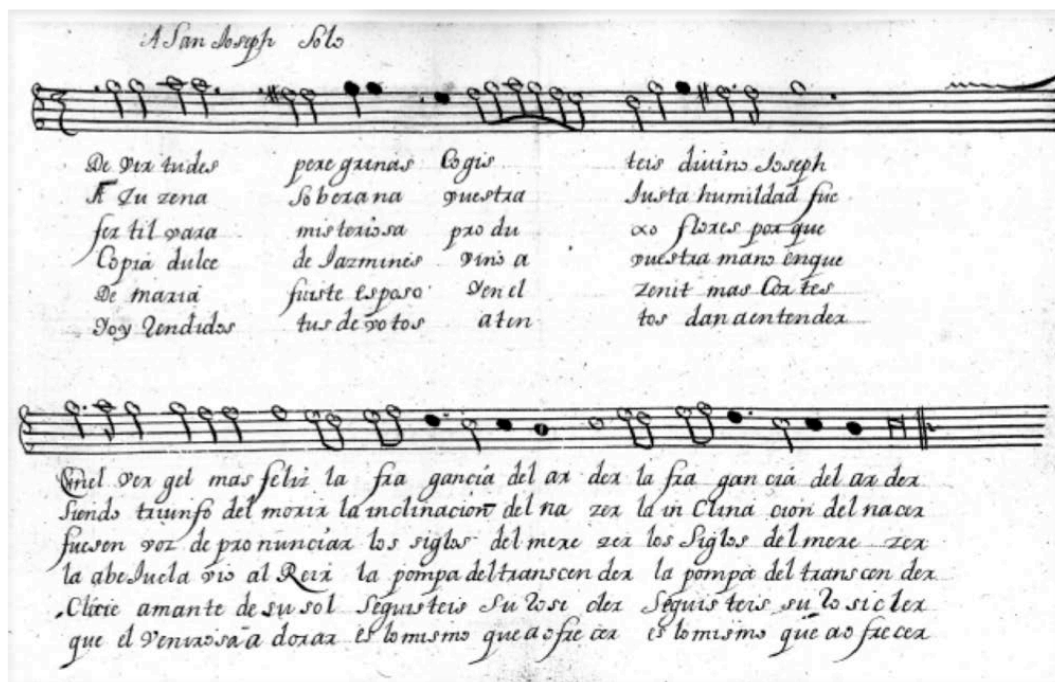 A San Joseph Solo
De ver tudes pere grinas Cogis teis divino Joseph
A Zu zena Soberana vuestra Justa humildad fue
fer til vara misteriosa pro du xo flores por que
Copia dulce de Jazmines vino a vuestra mano enque
De maria fuiste esposo Yen el zenit mas Cortes
Yoy Rendidos tus de votos aten tos dan a entender
Enel ver gel mas feliz la fra gancia del ar der la fra gan cia del ar der
Siendo triunfo del morir la inclinacion del na zer la in Clina cion del nacer
fuesen voz de pro nunciar los siglos del mere zer los Siglos del mere zer
la abejuela vio al Reir la pompa del transcen der la pompa del transcen der
Clicie amante de su sol Seguisteis Su Rosi cler Seguis teis su Ro sicler
que el venir a dorar es lo mismo que a ofre cer es lo mismo que ao fre cer